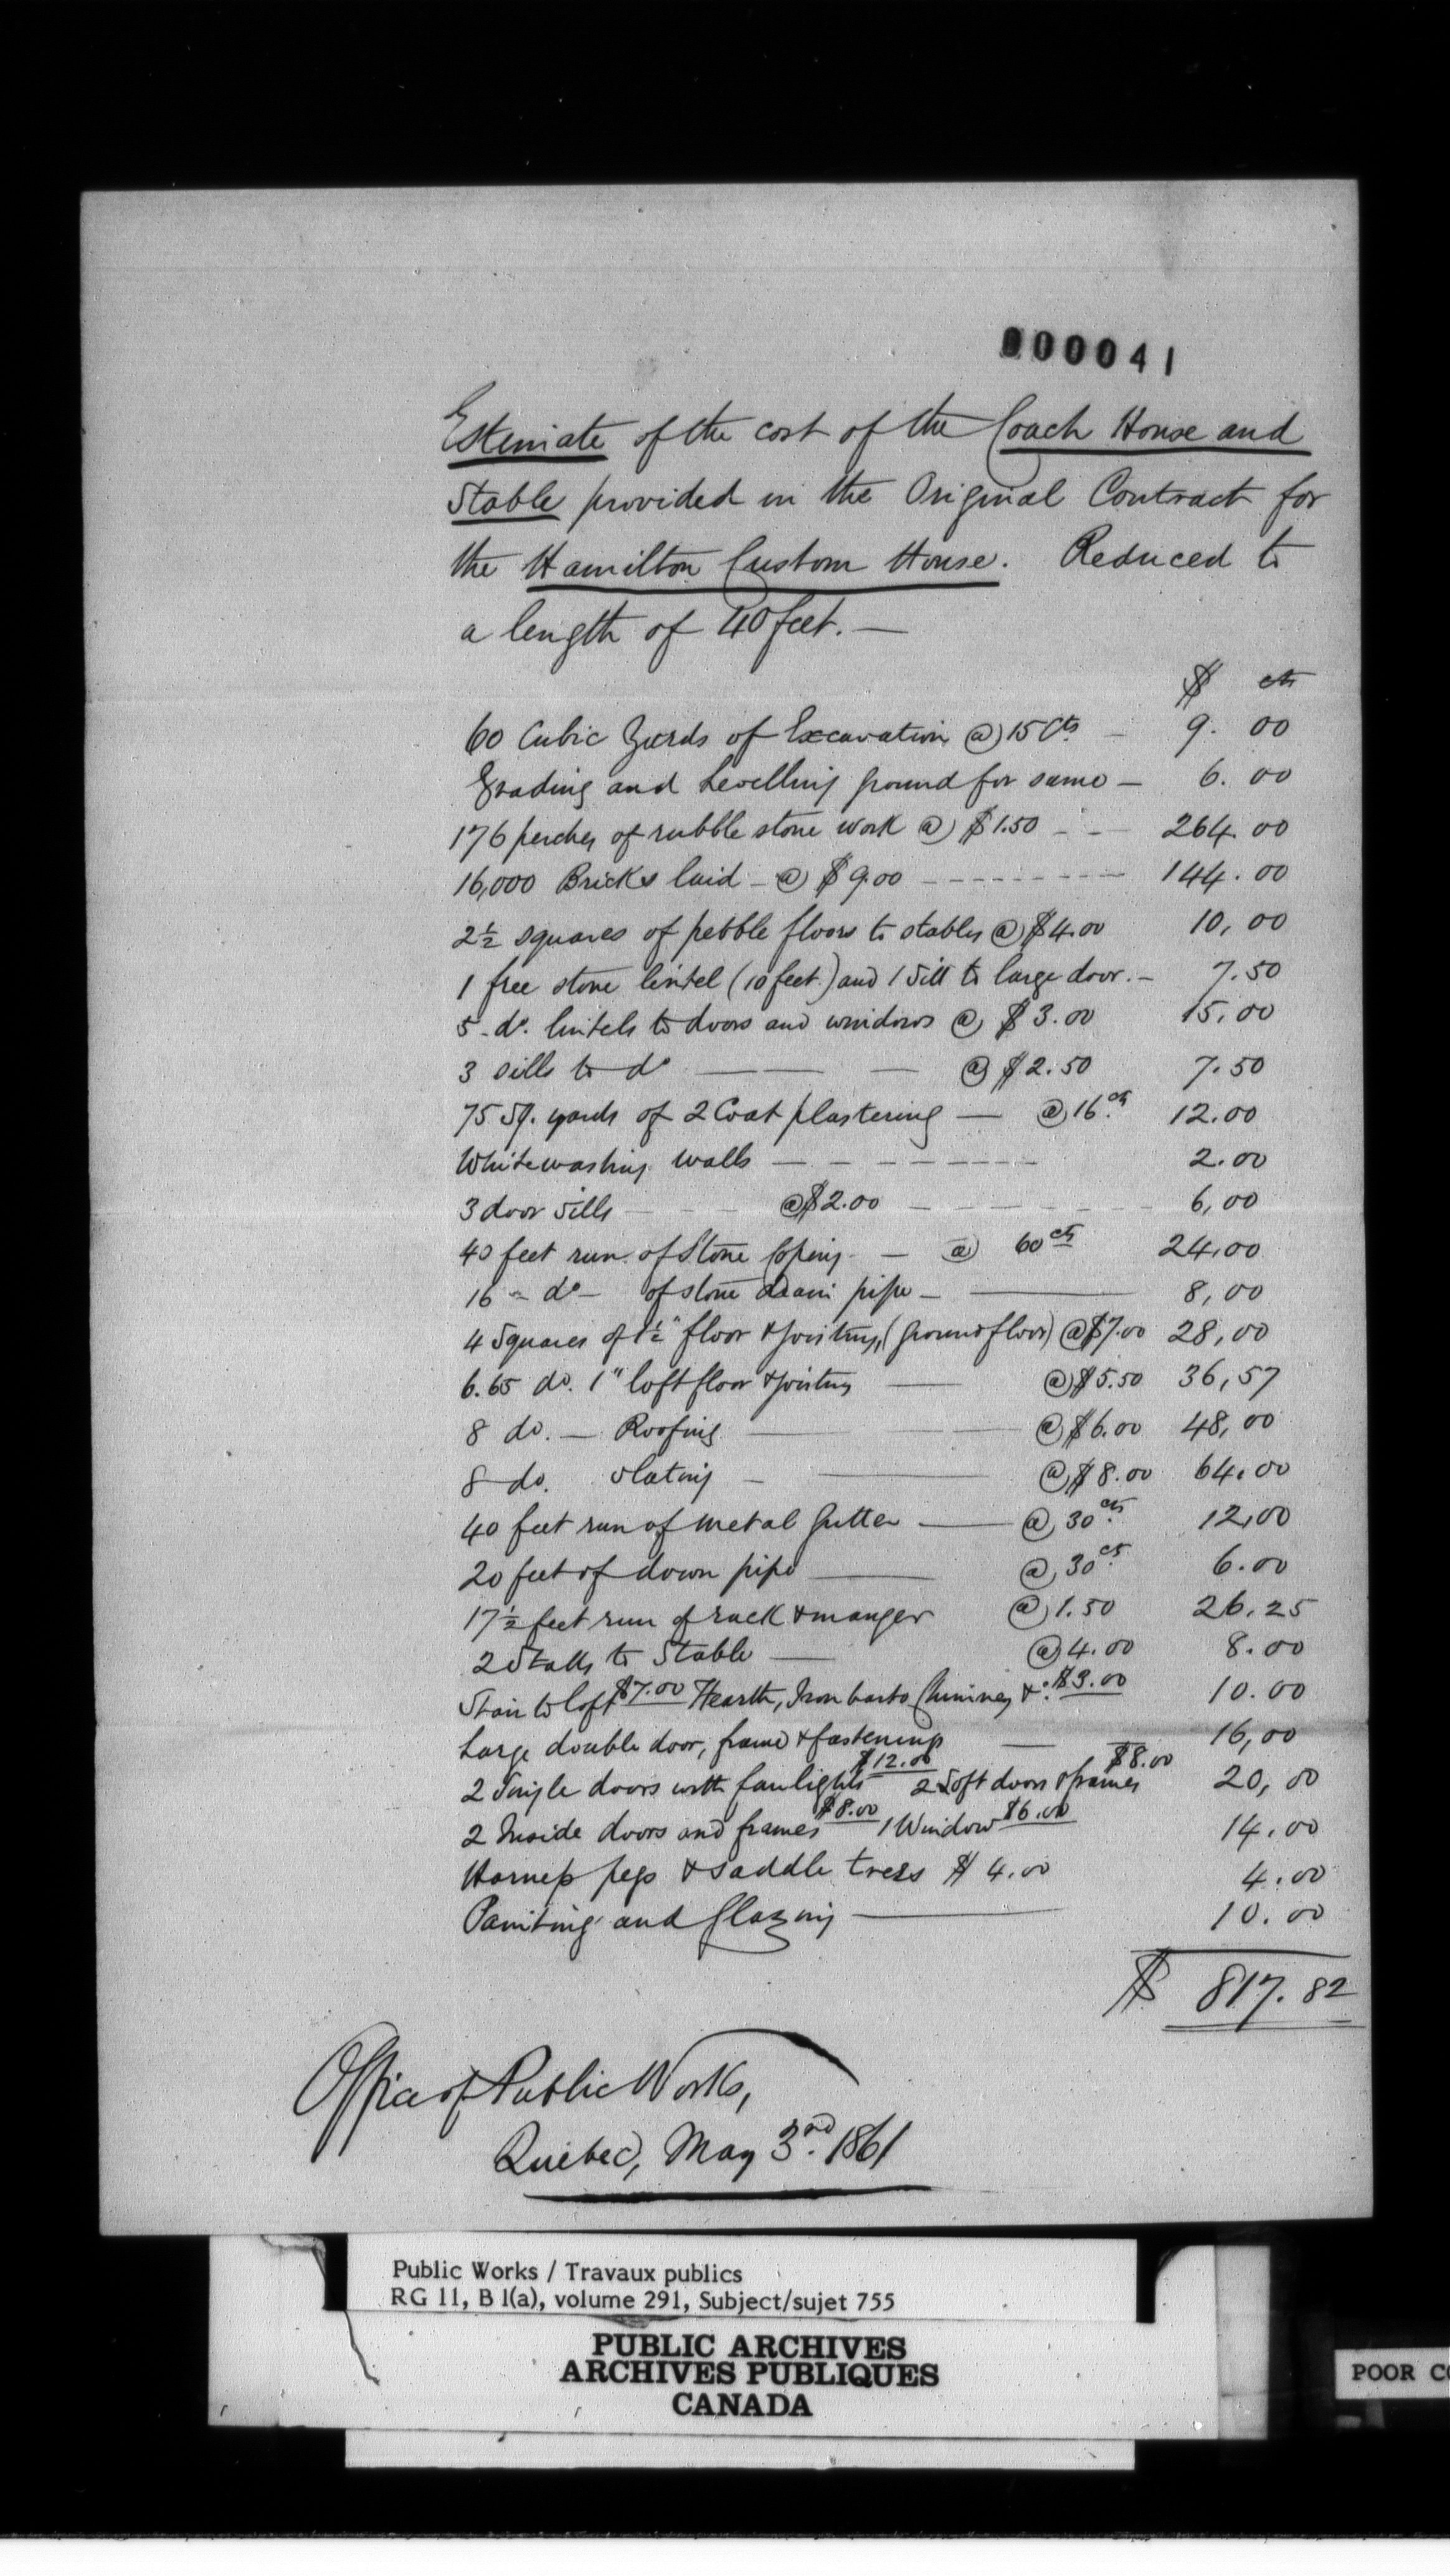 000041
Estimate of the cost of the Coach House and
Stable provided in the Original Contract for
the Hamilton Custom House. Reduced to
a length of 40 feet. —
$ cts
60 Cubic Yards of Excavation @ 15 Cts — 9. 00
Grading and Levelling ground for same — 6. 00
176 perches of rubble stone work @ $1.50 - - — 264. 00
16,000 Bricks laid - @ $9.00 - - - - - - - - - 144. 00
2½ squares of pebble floors to stables @ $4.00 10, 00
1 free stone lintel (10 feet) and 1 Sill to large door. — 7.50
5 - do. lintels to doors and windows @ $3.00 15,00
3 sills to do — — — @ $2.50 7.50
75 Sq. yards of 2 Coat plastering — @ 16 cts 12.00
Whitewashing walls — - - - - - - - 2.00
3 door sills - - - @ $2.00 - - - - - - 6,00
40 feet run of Stone Coping — @ 60 cts 24,00
16 " do — of stone drain pipe — ——— 8,00
4 Squares of 1½" floor & joisting, (ground floor) @ $7.00 28,00
6.65 do. 1" loft floor & joisting —— @ $5.50 36,57
8 do. — Roofing —— — — @ $6.00 48,00
8 do. Slating — ——— @ $8.00 64.00
40 feet run of metal Gutter —— @ 30 cts 12,00
20 feet of down pipe —— @ 30 cts 6.00
17½ feet run of rack & manger @ 1.50 26.25
2 Stalls to Stable —— @ 4.00 8.00
Stair to loft $7.00 Hearth, Iron bar to Chimney &c. $3.00 10.00
Large double door, frame & fastenings — 16,00
2 Single doors with fanlights $12.00 2 Loft doors & frames $8.00 20,00
2 Inside doors and frames $8.00 1 Window $6.00 14.00
Harness pegs & saddle trees $4.00 4.00
Painting and Glazing ——— 10.00
$ 817.82
Office of Public Works,
Quebec, May 3rd. 1861
Public Works / Travaux publics
RG 11, B 1(a), volume 291, Subject/sujet 755
PUBLIC ARCHIVES
ARCHIVES PUBLIQUES
CANADA
POOR